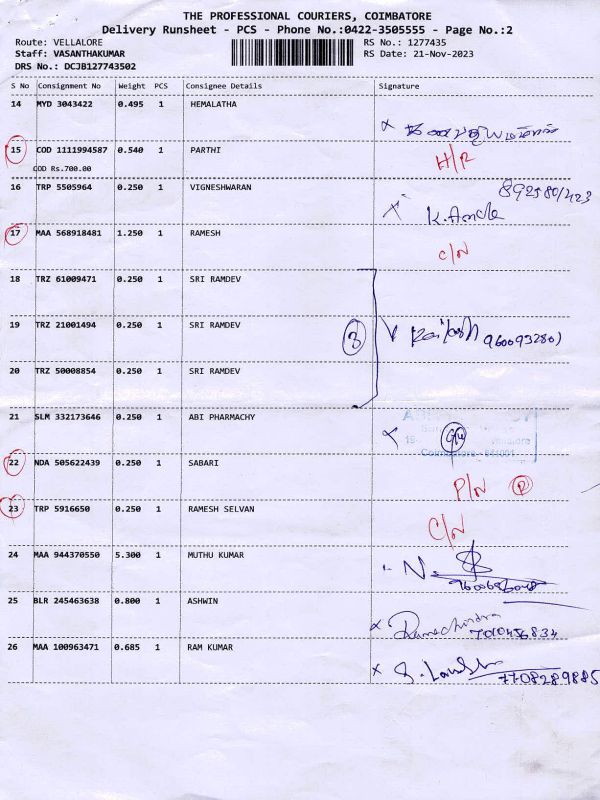 THE PROFESSIONAL COURIERS, COIMBATORE
Delivery Runsheet - PCS - Phone No.:0422-3505555 - Page No.:2
Route: VELLALORE RS No.: 1277435
Staff: VASANTHAKUMAR RS Date: 21-Nov-2023
DRS No.: DCJB127743502
S No Consignment No Weight PCS Consignee Details Signature
14 MYD 3043422 0.495 1 HEMALATHA
15 COD 1111994587 0.540 1 PARTHI
COD Rs.700.00
16 TRP 5505964 0.250 1 VIGNESHWARAN
17 MAA 568918481 1.250 1 RAMESH C/N
18 TRZ 61009471 0.250 1 SRI RAMDEV
19 TRZ 21001494 0.250 1 SRI RAMDEV 3
20 TRZ 50008854 0.250 1 SRI RAMDEV
21 SLM 332173646 0.250 1 ABI PHARMACHY
22 NDA 505622439 0.250 1 SABARI P/N
23 TRP 5916650 0.250 1 RAMESH SELVAN C/N
24 MAA 944370550 5.300 1 MUTHU KUMAR
25 BLR 245463638 0.800 1 ASHWIN
7010456834
26 MAA 100963471 0.685 1 RAM KUMAR
7708289885